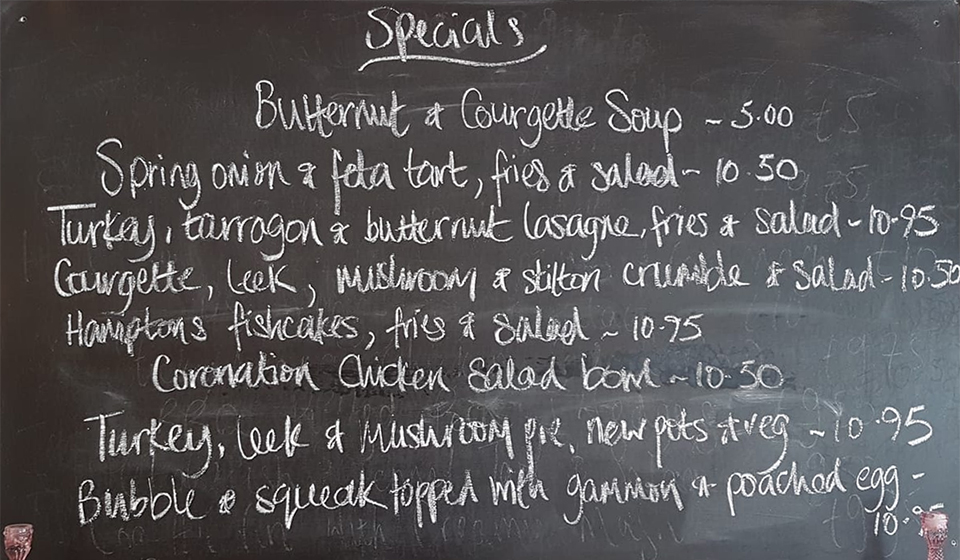 Specials
Butternut & Courgette Soup ~ 5.00
Spring onion & feta tart, fries & salad ~ 10.50
Turkey, tarragon & butternut lasagne, fries & salad ~ 10.95
Courgette, leek, mushroom & stilton crumble & salad ~ 10.50
Hamptons fishcakes, fries & salad ~ 10.75
Coronation Chicken Salad bowl ~ 10.50
Turkey, leek & Mushroom pie, new pots & veg ~ 10.95
Bubble & squeak topped with gammon & poached egg -